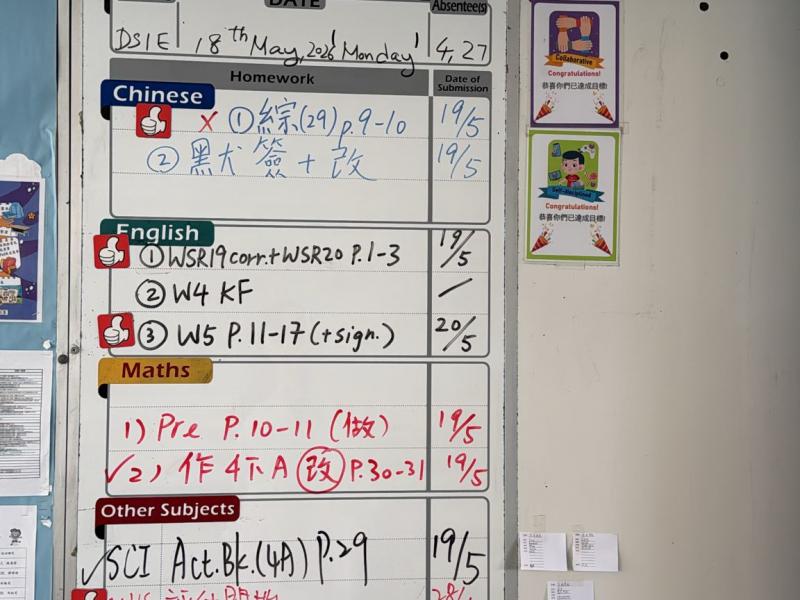 DATE
Absentee(s)
DS1E 18th May, 2026 (Monday) 4, 27
Homework Date of Submission
Chinese
X ① 綜(29) p.9-10 19/5
② 黑犬 簽 + 改 19/5
English
① WSR19 corr.+WSR20 P.1-3 19/5
② W4 KF /
③ W5 P.11-17 (+sign.) 20/5
Maths
1) Pre P.10-11 (做) 19/5
✓2) 作 4下A 改 P.30-31 19/5
Other Subjects
✓SCI Act.Bk.(4A) P.29 19/5
Collaborative
Congratulations!
恭喜你們已達成目標!
Self-disciplined
Congratulations!
恭喜你們已達成目標!